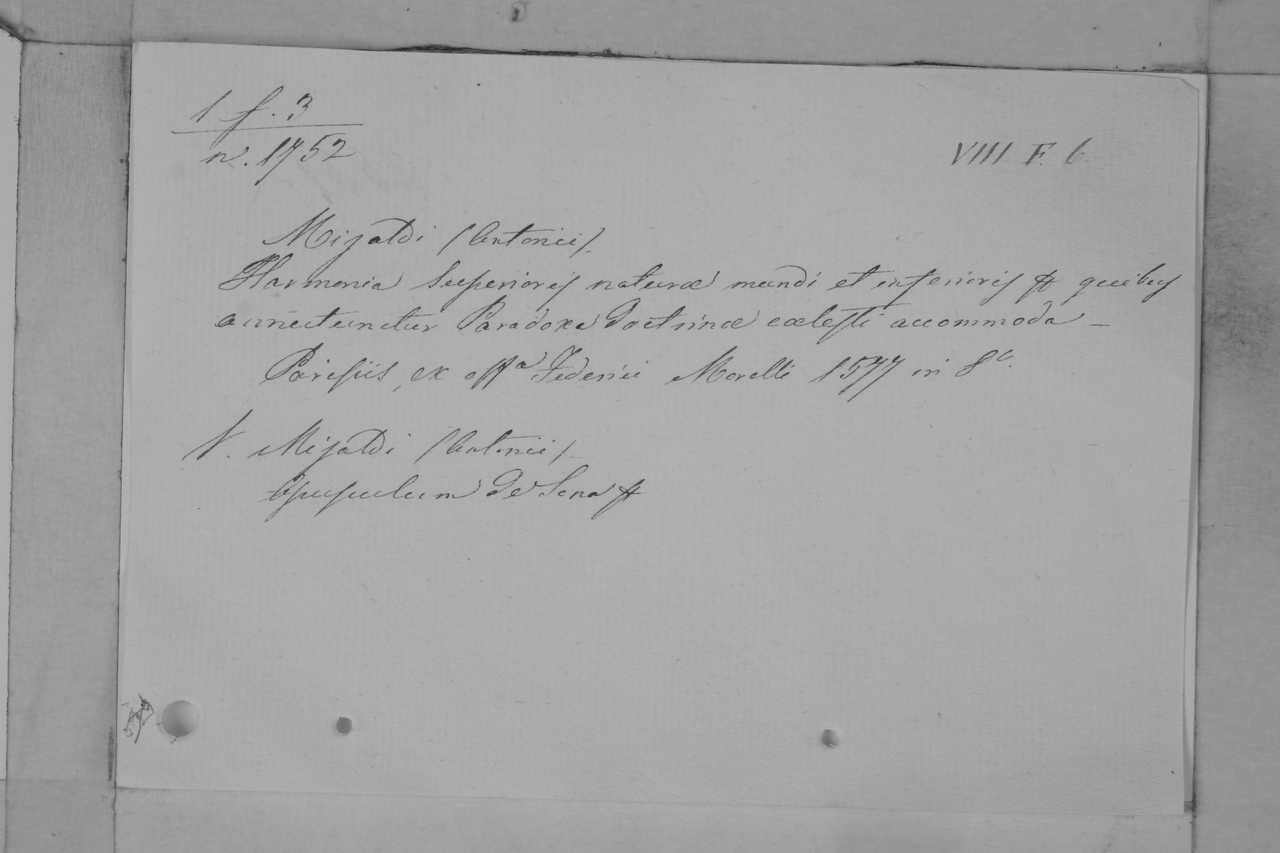 1 f. 3
n. 1752
VIII F. 6
Mizaldi (Antonii)
Harmonia Superioris naturæ mundi et inferioris & quibus
annectuntur Paradoxa doctrinæ cœlesti accommoda _
Parisiis, ex offª Federici Morelli 1577 in 8º.
V. Mizaldi (Antonii)
Opusculum de Sena &